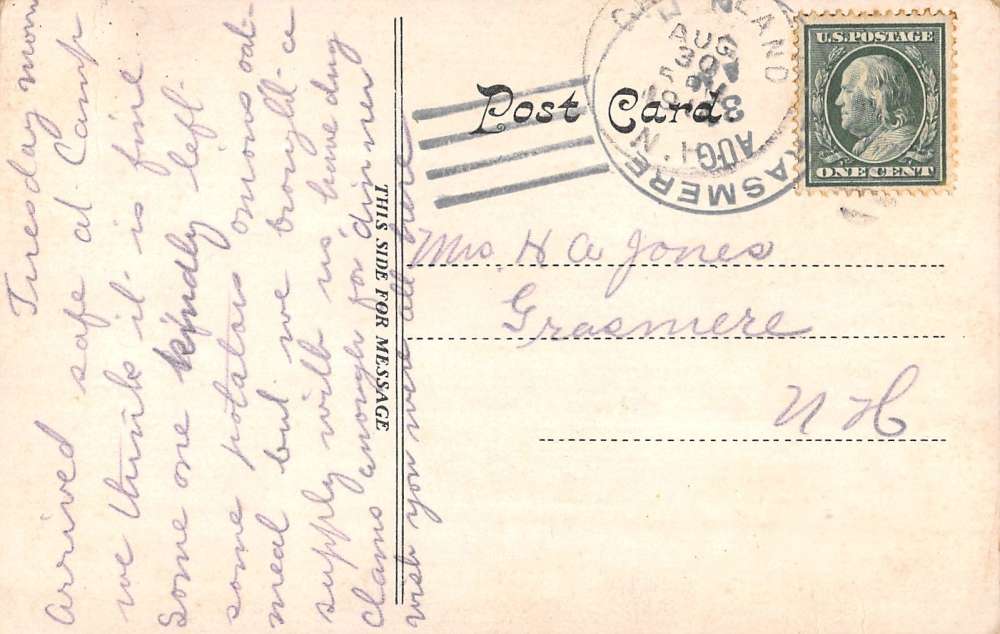 Tuesday morn
Arrived safe at Camp
we think it is fine
Some one kindly left
some potatoes onions oat-
meal but we brought a
supply with us, have dug
clams enough for dinner
wish you were all here
THIS SIDE FOR MESSAGE
Post Card
AUG
30
GRASMERE
N.H.
AUG
31
U.S. POSTAGE
ONE CENT
Mrs. H A Jones
Grasmere
N H